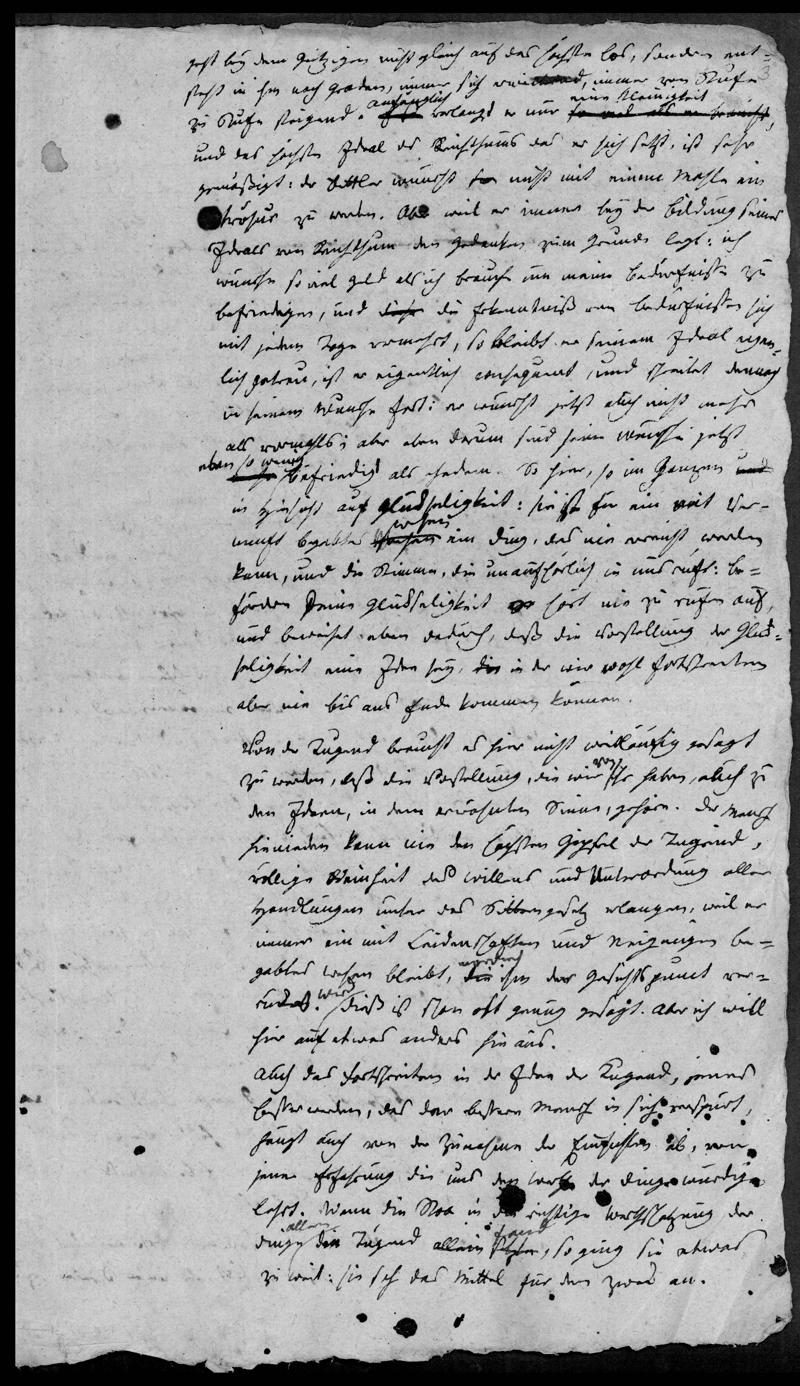 geht bey dem Geitzigen nicht gleich auf das höchste los, sondern ent-
steht in ihm nach Graden, immer sich , immer von Stufe
zu Stufe steigend. anfänglich verlangt er nur eine Kleinigkeit so viel als er braucht,
und das höchste Ideal des Reichthums das er sich setzt, ist sehr
gemäßigt: der Bettler wünscht nicht mit einem Mahle ein
Krösus zu werden. Aber weil er immer bey der Bildung seines
Ideals von Reichthum den Gedanken zum Grunde legt: ich
wünsche so viel Geld als ich brauche um meine Bedürfnisse zu
befriedigen, und diese die Erkenntniß von Bedürfnissen sich
mit jedem Tage vermehrt, so bleibt er seinem Ideal eigent-
lich getreu, ist er eigentlich consequent, und schreitet dennoch
in seinem Wunsche fort: er wünscht jetzt auch nicht mehr
als vormahls; aber eben darum sind seine Wünsche jetzt
eben so wenig befriedigt als ehedem. So hier, so im Ganzen und
in Hinsicht auf Glückseligkeit: sie ist für ein mit Ver-
nunft begabtes Wesen ein Ding, das nie erreicht werden
kann, und die Stimme, die unaufhörlich in uns ruft: be-
fördere Deine Glückseligkeit hört nie zu rufen auf,
und beweiset eben dadurch, daß die Vorstellung der Glück-
seligkeit eine Idee sey, die in der wir wohl fortschreiten
aber nie bis ans Ende kommen können.
Von der Tugend braucht es hier nicht weitläuftig gesagt
zu werden, daß die Vorstellung, die wir von ihr haben, auch zu
den Ideen, in dem erwähnten Sinne, gehöre. Der Mensch
hienieden kann nie den höchsten Gipfel der Tugend,
völlige Reinheit des Willens und Unterordnung aller
Handlungen unter das Sittengesetz erlangen, weil er
immer ein mit Leidenschaften und Neigungen be-
gabtes Wesen bleibt, wodurch die ihm der Gesichtspunct ver-
rückt wird. Dieß ist schon oft genug gesagt. Aber ich will
hier auf etwas anders hinaus.
Auch das Fortschreiten in der Idee der Tugend, jenes
Besserwerden, das der bessere Mensch in sich verspürt,
hängt auch von der Zunahme der Einsichten ab, von
jener Erfahrung die uns den Werth der Dinge würdigen
lehrt. Wenn die Stoa in der richtige Werthschätzung der
Dinge allein die Tugend allein fand, so ging sie etwas
zu weit: sie sah das Mittel für den Zweck an.